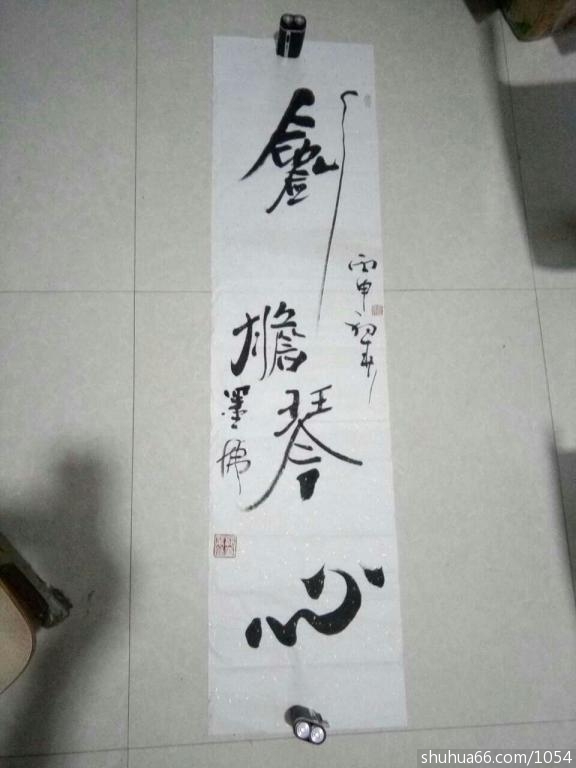 劍膽琴心
丙申初春
墨佛
shuhua66.com/1054